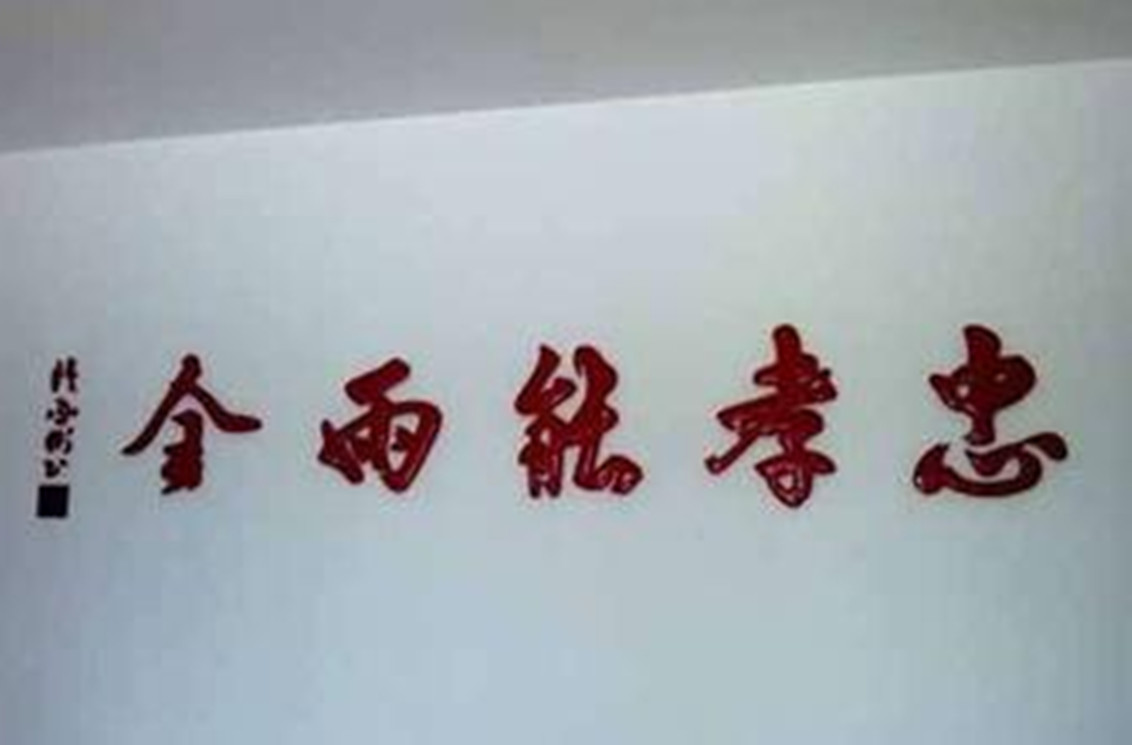 忠孝能兩全